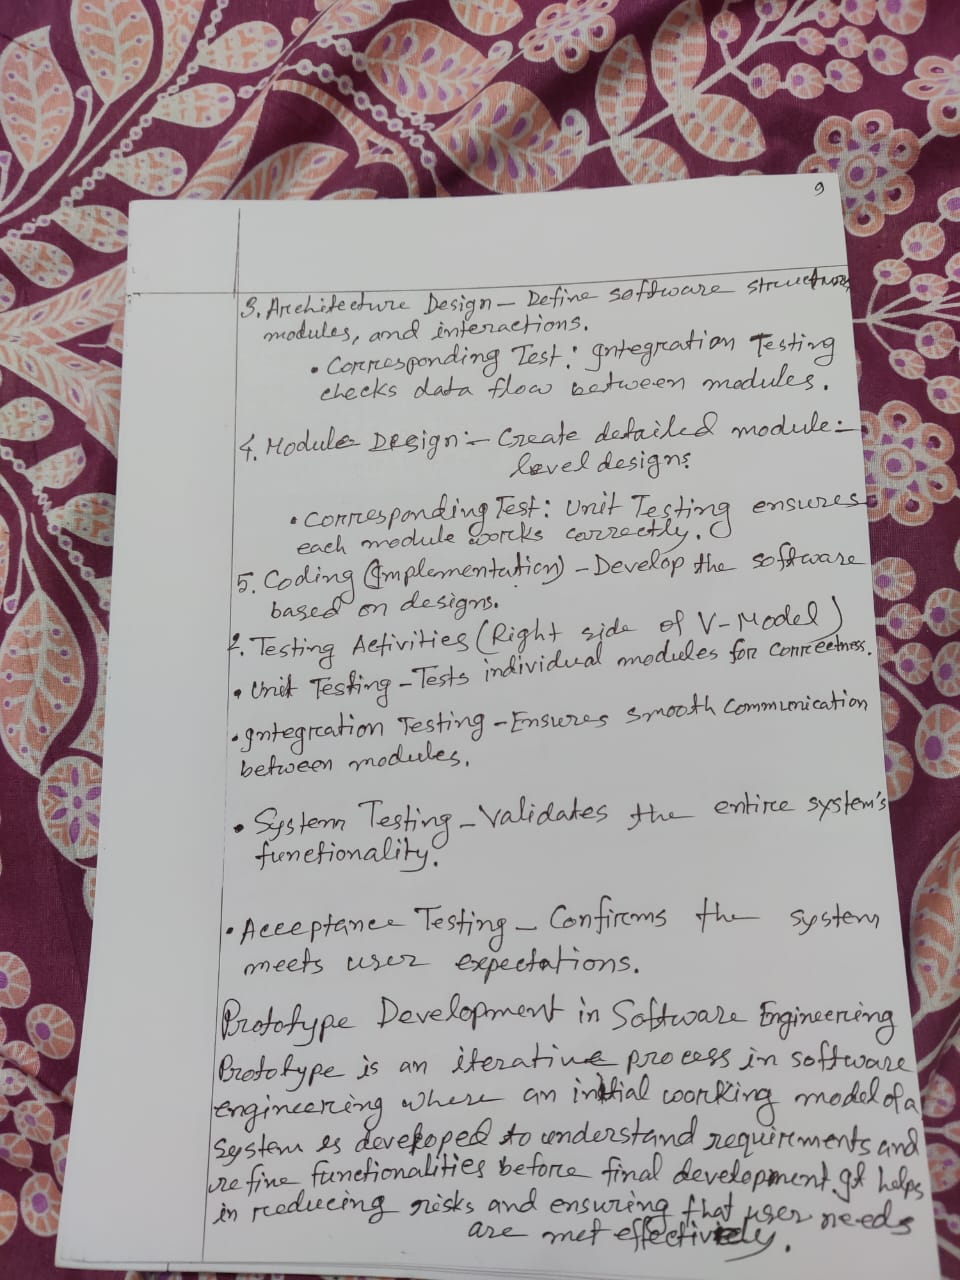 9
3. Architecture Design - Define software structure,
modules, and interactions.
• Corresponding Test: Integration Testing
checks data flow between modules.
4. Module Design:- Create detailed module-
level designs.
• Corresponding Test: Unit Testing ensures
each module works correctly.
5. Coding (Implementation) - Develop the software
based on designs.
2. Testing Activities (Right side of V-Model)
• Unit Testing - Tests individual modules for correctness.
• Integration Testing - Ensures smooth communication
between modules.
• System Testing - Validates the entire system's
functionality.
• Acceptance Testing - Confirms the system
meets user expectations.
Prototype Development in Software Engineering
Prototype is an iterative process in software
engineering where an initial working model of a
system is developed to understand requirements and
refine functionalities before final development. It helps
in reducing risks and ensuring that user needs
are met effectively.